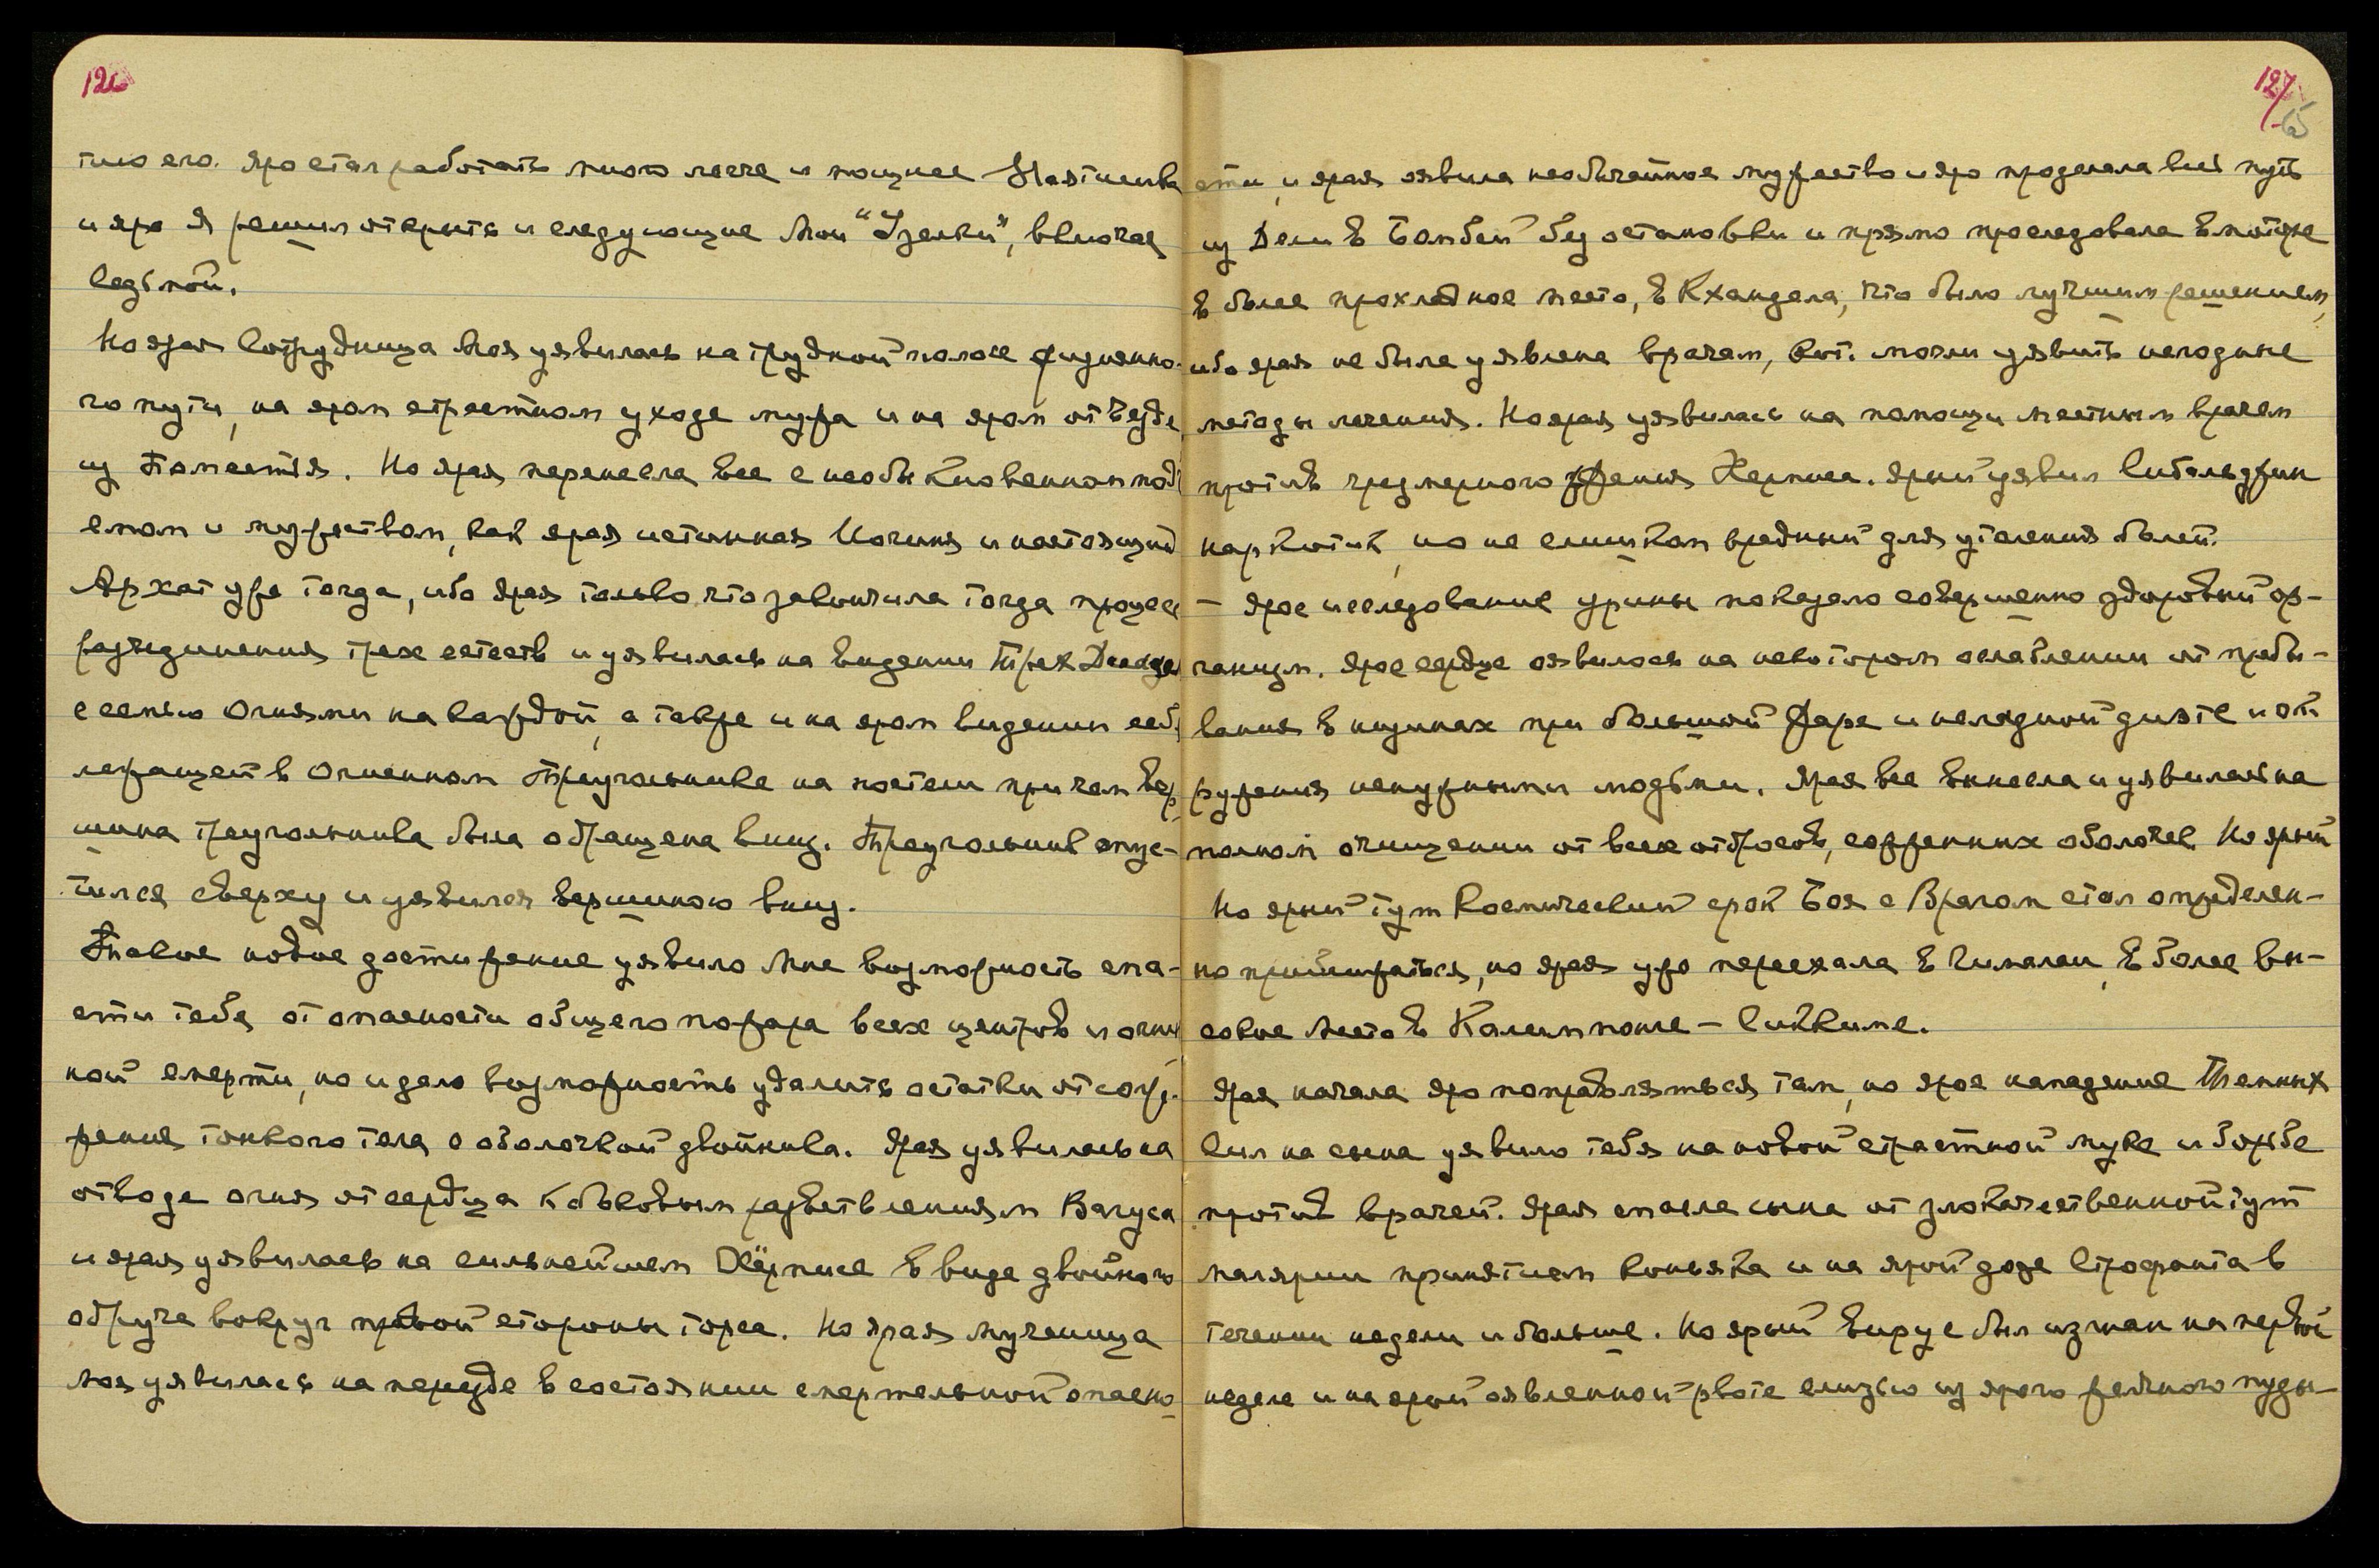 126
тию его. Яро стал работать много легче и мощнее Участника
и яро Я решил открыть и следующие Мои "Узелки", включая
седьмой.
Но ярая Сотрудница Моя уявилась на трудной полосе жизненно-
го пути, на яром страстном уходе мужа и на яром отъезде
из Поместья. Но ярая перенесла все с необыкновенном подъ
емом и мужеством, как ярая истинная Йогиня и настоящий
Архат уже тогда, ибо ярая только что закончила тогда процесс
разъединения трех естеств и уявилась на видении Трех
с семью огнями на каждой, а также и на яром видении себя
лежащей в Огненном Треугольнике на постели причем вер
шина треугольника была обращена вниз. Треугольник опус-
тился сверху и уявился вершиною вниз.
Такое новое достижение уявило Мне возможность спа-
сти тебя от опасности общего пожара всех центров и огнен
ной смерти, но и дало возможность удалить остатки от сопр.
жения тонкого тела с оболочкой двойника. Ярая уявилась на
отводе огня от сердца к боковым разветвлениям Вагуса
и ярая уявилась на сильнейшем Хёрписе в виде двойного
обруча вокруг правой стороны торса. Но ярая мученица
Моя уявилась на переезде в состоянии смертельной опасно-
127
сти, и ярая оявила необычайное мужество и яро проделала весь путь
из Дели в Бомбей без остановки и прямо проследовала в моторе
в более прохладное место, в Кхандала, что было лучшим решением,
ибо ярая не была уявлена врачам, кот. могли уявить негодные
методы лечения. Но ярая уявилась на помощи местным врачем
против чрезмерного жжения Херписа. Ярый уявил Сибальджин
наркотик, но не слишком вредный для утоления болей.
- Ярое исследование урины показало совершенно здоровый ор-
ганизм. Ярое сердце оявилось на некотором ослаблении от пребы-
вания в низинах при большой жаре и неладной диэте и ок
ружения ненужными людьми. Ярая все вынесла и уявилась на
полном очищении от всех отбросов, сожженных оболочек Но ярый
Но ярый тут Космический срок Боя с Врагом стал определен-
но приближаться, но ярая уже переехала в Гималаи, в более вы-
сокое место в Калимпонге - Сиккиме.
Ярая начала яро поправляться там, но ярое нападение Темных
Сил на сына уявило тебя на новой страстной муке и борьбе
против врачей. Ярая спасла сына от злокачественной тут
малярии принятием коньяка и на ярой дозе Строфанта в
течении недели и больше. Но ярый вирус был изгнан на первой
неделе и на ярый оявленной рвоте слизью из ярого желчного пузы-